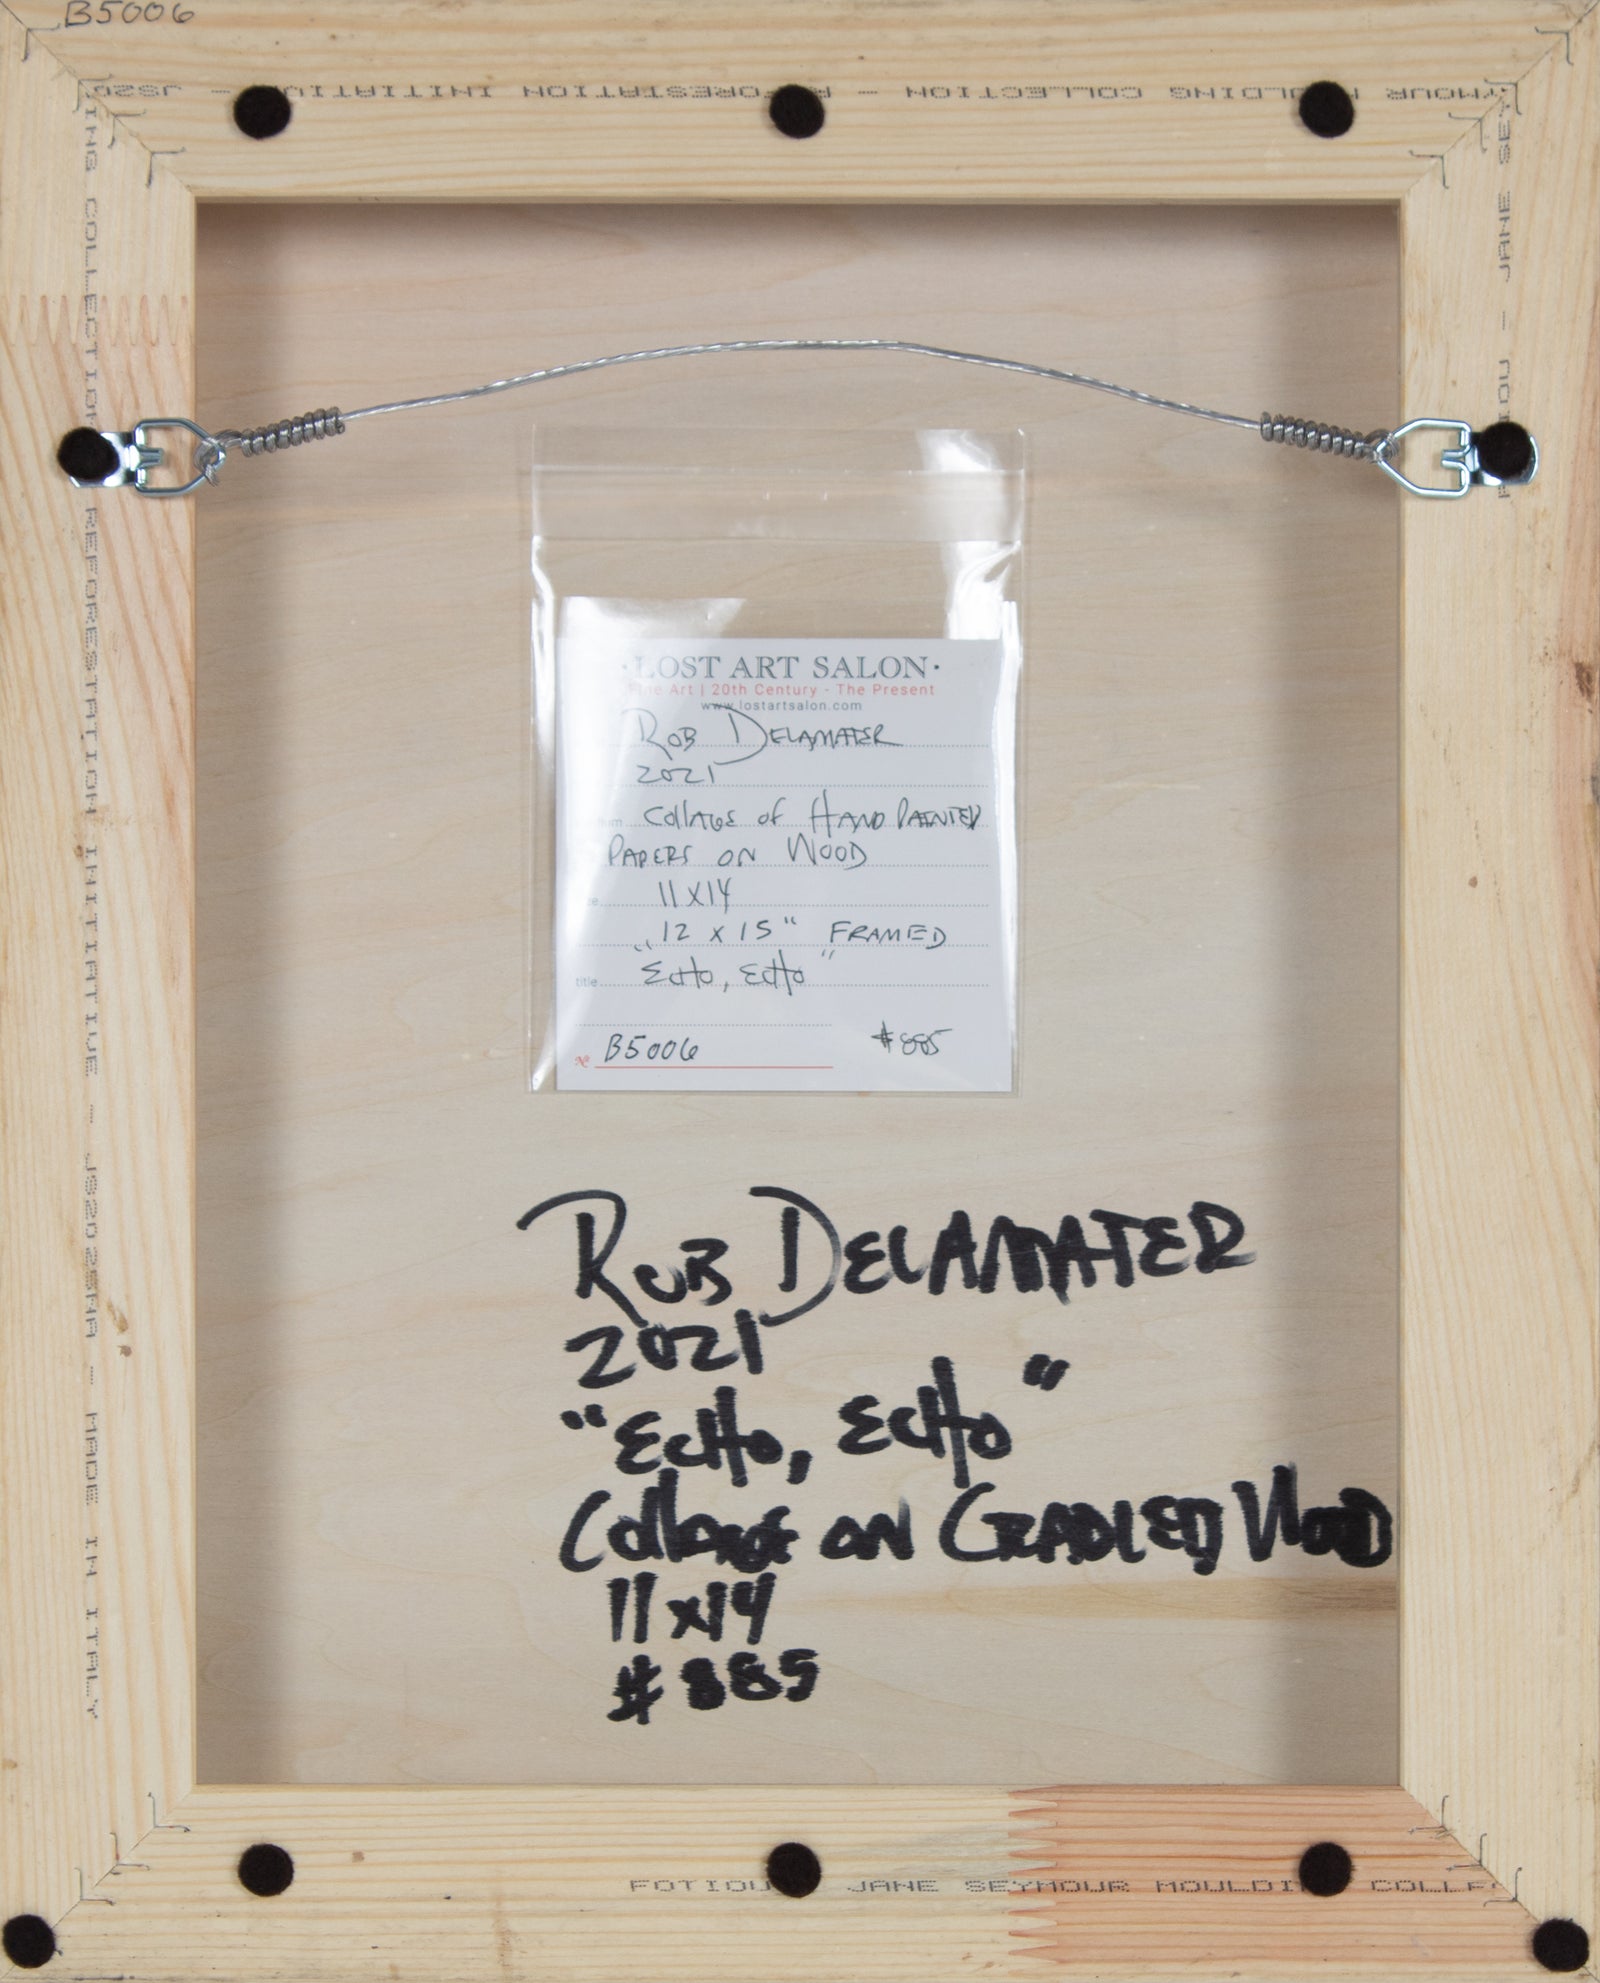 B5006
JANE SEYMOUR MOULDING COLLECTION - REFORESTATION INITIATIVE - JS20
ING COLLECTION REFORESTATION INITIATIVE - JS2025NA - MADE IN ITALY
FOTIOU - JANE SEY
·LOST ART SALON·
Fine Art | 20th Century - The Present
www.lostartsalon.com
ROB DELAMATER
2021
COllAGE of HAND PAINTED
PAPERS ON WOOD
11 X 14
12 x 15" FRAMED
title "ECHO, ECHO"
№ B5006 $885
ROB DELAMATER
2021
"ECHO, ECHO"
Collage on CRADLED WOOD
11x14
$885
FOTIOU JANE SEYMOUR MOULDIN COLLE